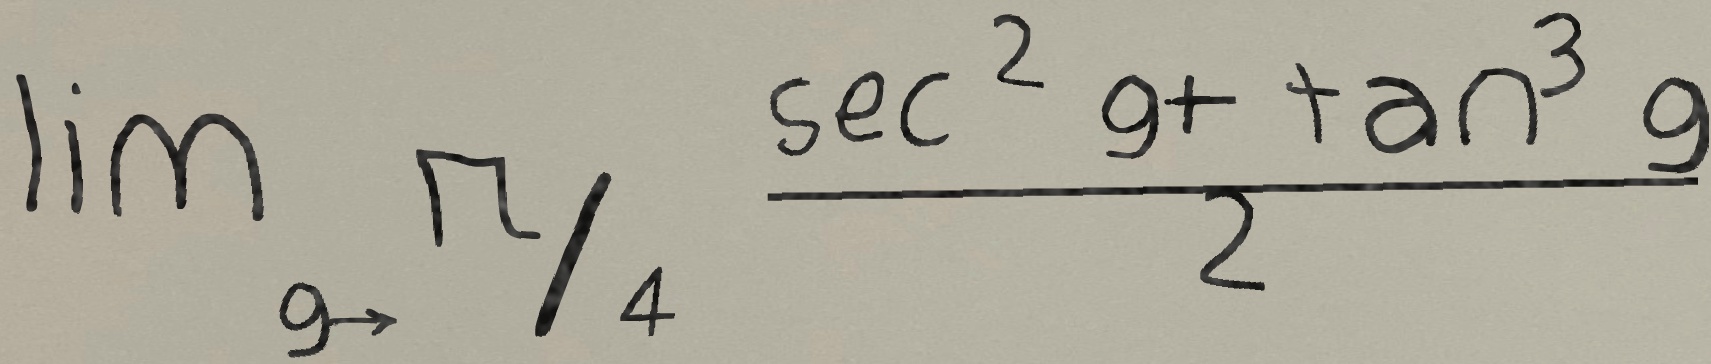 lim g→ π/4 sec² g+ tan³ g / 2